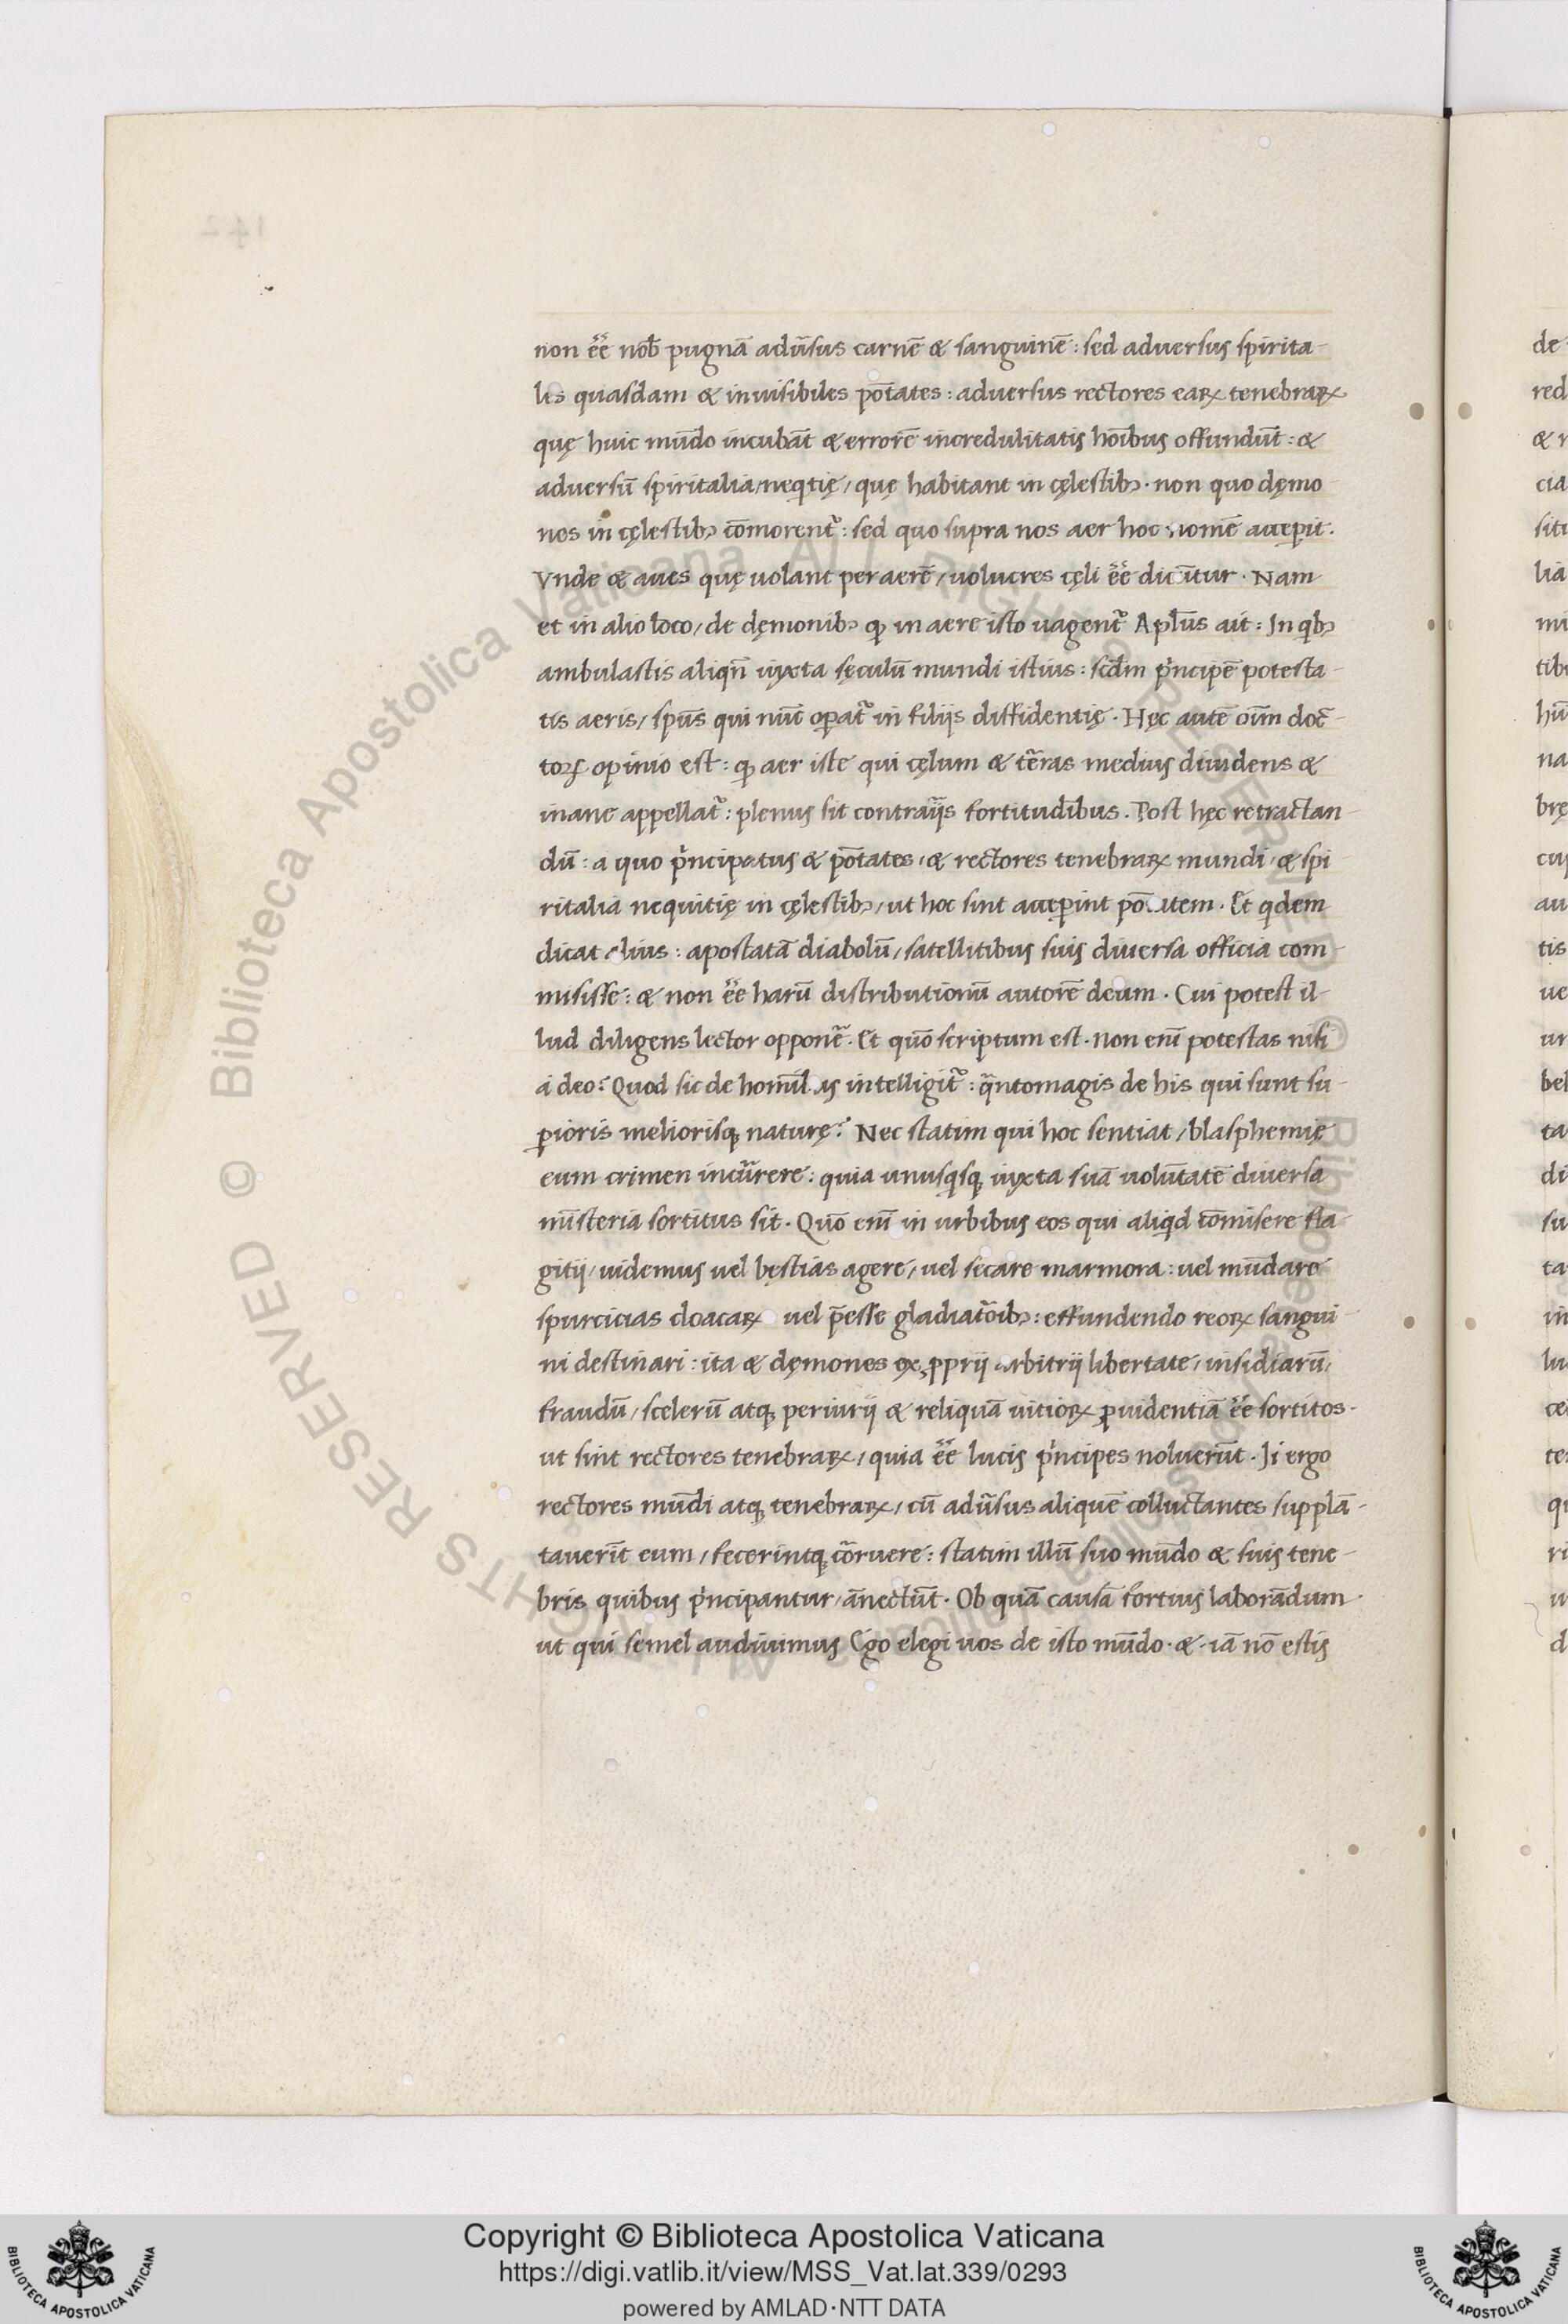 non ee᷃ nob̄ pugnā adũsus carnē & sanguinē: sed adversus spirita-
les quasdam & invisibiles po̅tates: adversus rectores eaꝝ tenebraꝝ
quę huic mūdo incubāt & errorē incredulitatis ho̅ibus offundūt: &
adversū spiritalia/neq̇tię/ quę habitant in cęlestibꝫ. non quo dęmo
nes in cęlestibꝫ co̅morent᷑: sed quo supra nos aer hoc nomē accepit.
Vnde & aves quę uolant per aerē/ uolucres cęli ee᷃ dicūtur. Nam
et in alio loco/ de dęmonibꝫ ꝙ in aere isto uagent᷑ Apl̅us ait: In qi̇bꝫ
ambulastis aliqn̄ iuxta sęculū mundi istius: scd̅m pi̇ncipē potesta-
tis aeris/ spu̅s qui nūc oꝑat᷑ in filijs diffidentię. Hęc autē oi̅m doc̅-
toꝝ opinio est: ꝙ aer iste qui cęlum & te᷑ras medius dividens &
inane appellat᷑: plenus sit contrarijs fortitudi̅bus. Post hęc retractan-
dū: a quo pi̇ncipatus & po̅tates/ & rectores tenebraꝝ mundi/ & spi
ritalia nequitię in cęlestibꝫ/ ut hoc sint acceꝑint po̅tatem. Et qi̇dem
dicat alius: apostatā diabolū/ satellitibus suis diversa officia com-
misisse: & non ee᷃ harū distributionū autorē deum. Cui potest il-
lud diligens lector opponē. Et quo̅ scriptum est. Non eni̅ potestas nisi
a deo? Quod sic de homi̅bus intelligit᷑: qᷓntomagis de his qui sunt su-
ꝑioris meliorisqꝫ naturę? Nec statim qui hoc sentiat/ blasphemię
eum crimen incu᷑rere: quia unusqi̇sqꝫ iuxta suā volūtatē diversa
mi̅steria sortitus sit. Quo̅ eni̅ in urbibus eos qui aliqi̇d co̅misere fla-
gitij/ uidemus uel bęstias agere/ uel secare marmora: uel mūdare
spurcicias cloacaꝝ uel p̄esse gladiato̅ibꝫ: effundendo reoꝝ sangui-
ni destinari: ita & dęmones ex ꝓprij arbitrij libertate/ insidiarū/
fraudū/ scelerū atqꝫ periurij & reliquā uitioꝝ ꝓuidentiā ee᷃ sortitos.
ut sint rectores tenebraꝝ/ quia ee᷃ lucis pi̇ncipes noluerūt. Ii ergo
rectores mūdi atqꝫ tenebraꝝ/ cū adũsus aliquē colluctantes supplā-
tauerīt eum/ fecerintqꝫ co᷑ruere: statim illū suo mūdo & suis tene-
bris quibus pi̇ncipantur/ ānectūt. Ob quā causā fortius laborādum
ut qui semel audiuimus Ego elegi uos de isto mūdo. &. iā nō estis
Copyright © Biblioteca Apostolica Vaticana
https://digi.vatlib.it/view/MSS_Vat.lat.339/0293
powered by AMLAD·NTT DATA